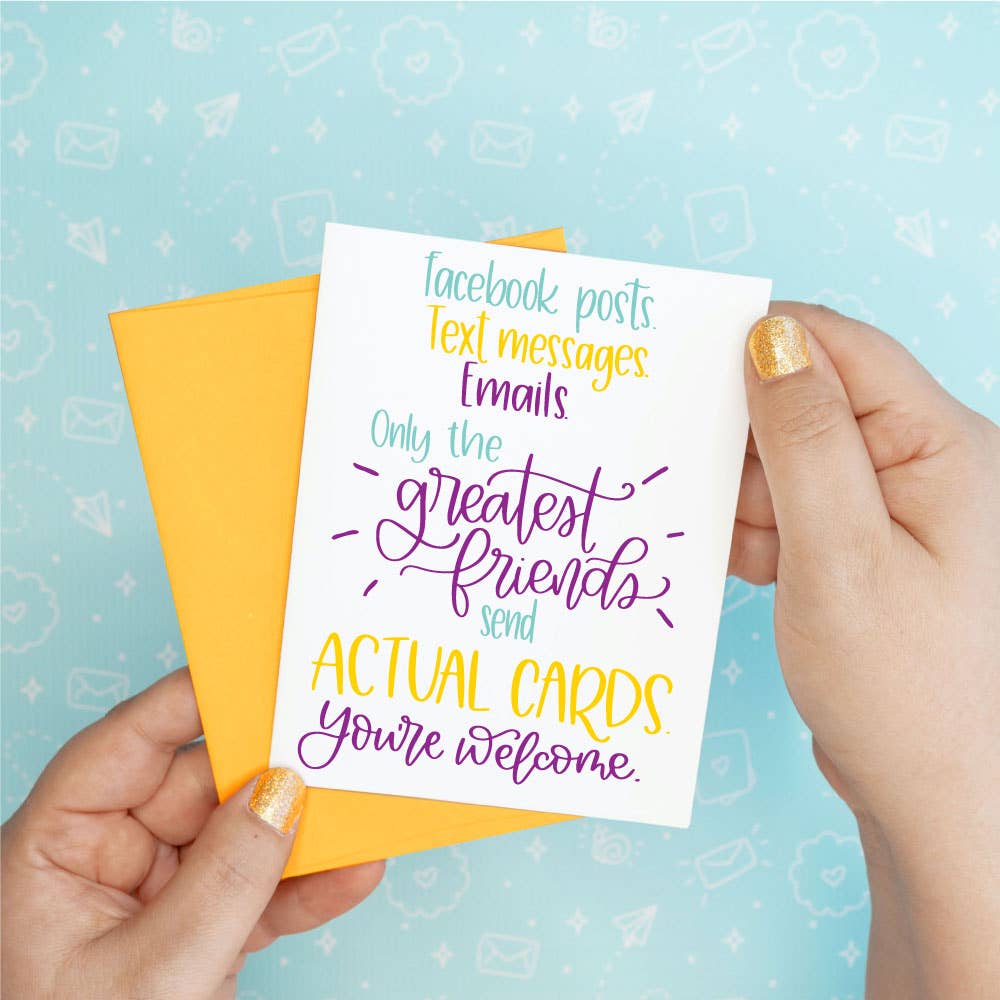 facebook posts.
Text messages.
Emails.
Only the
greatest
friends
send
ACTUAL CARDS.
You're welcome.